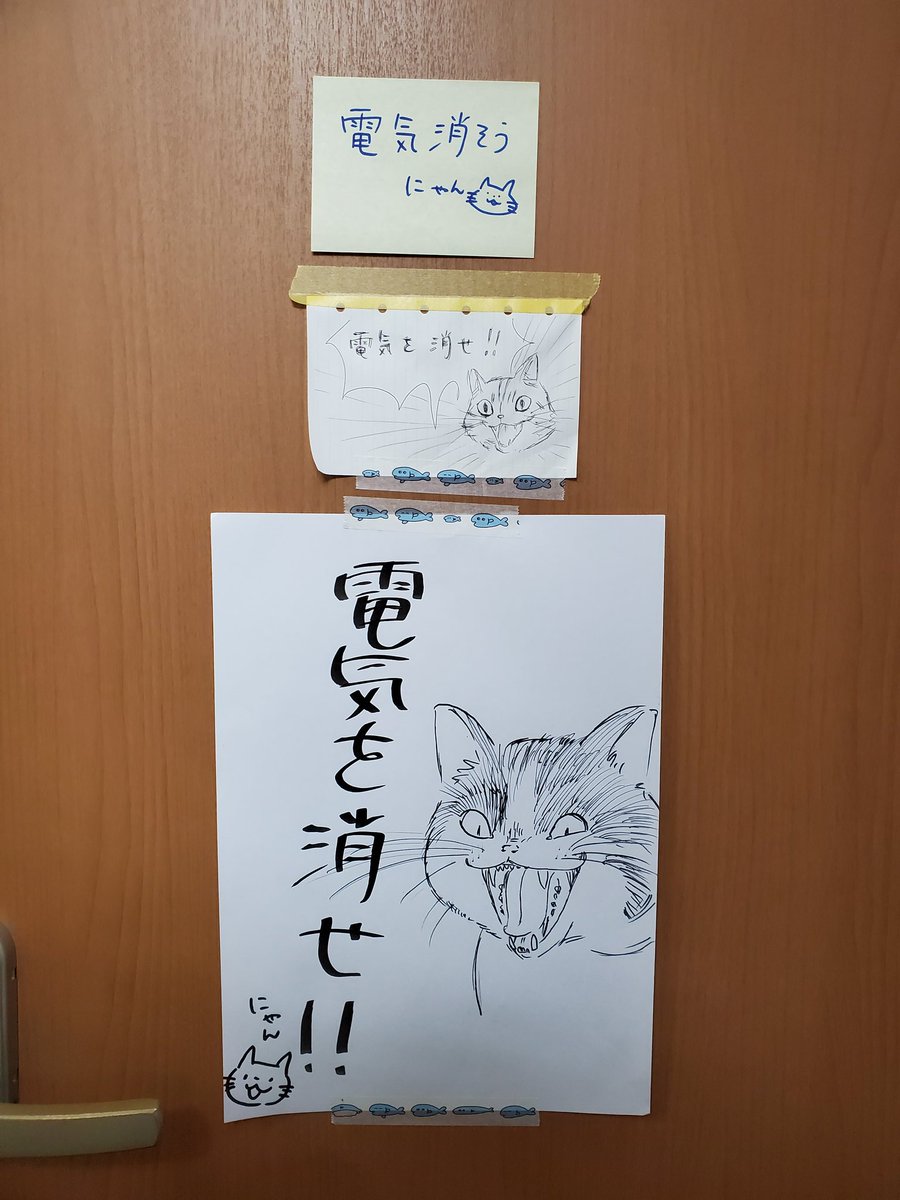 電気消そう
にゃん
電気を消せ!!
電気を消せ!!
にゃん